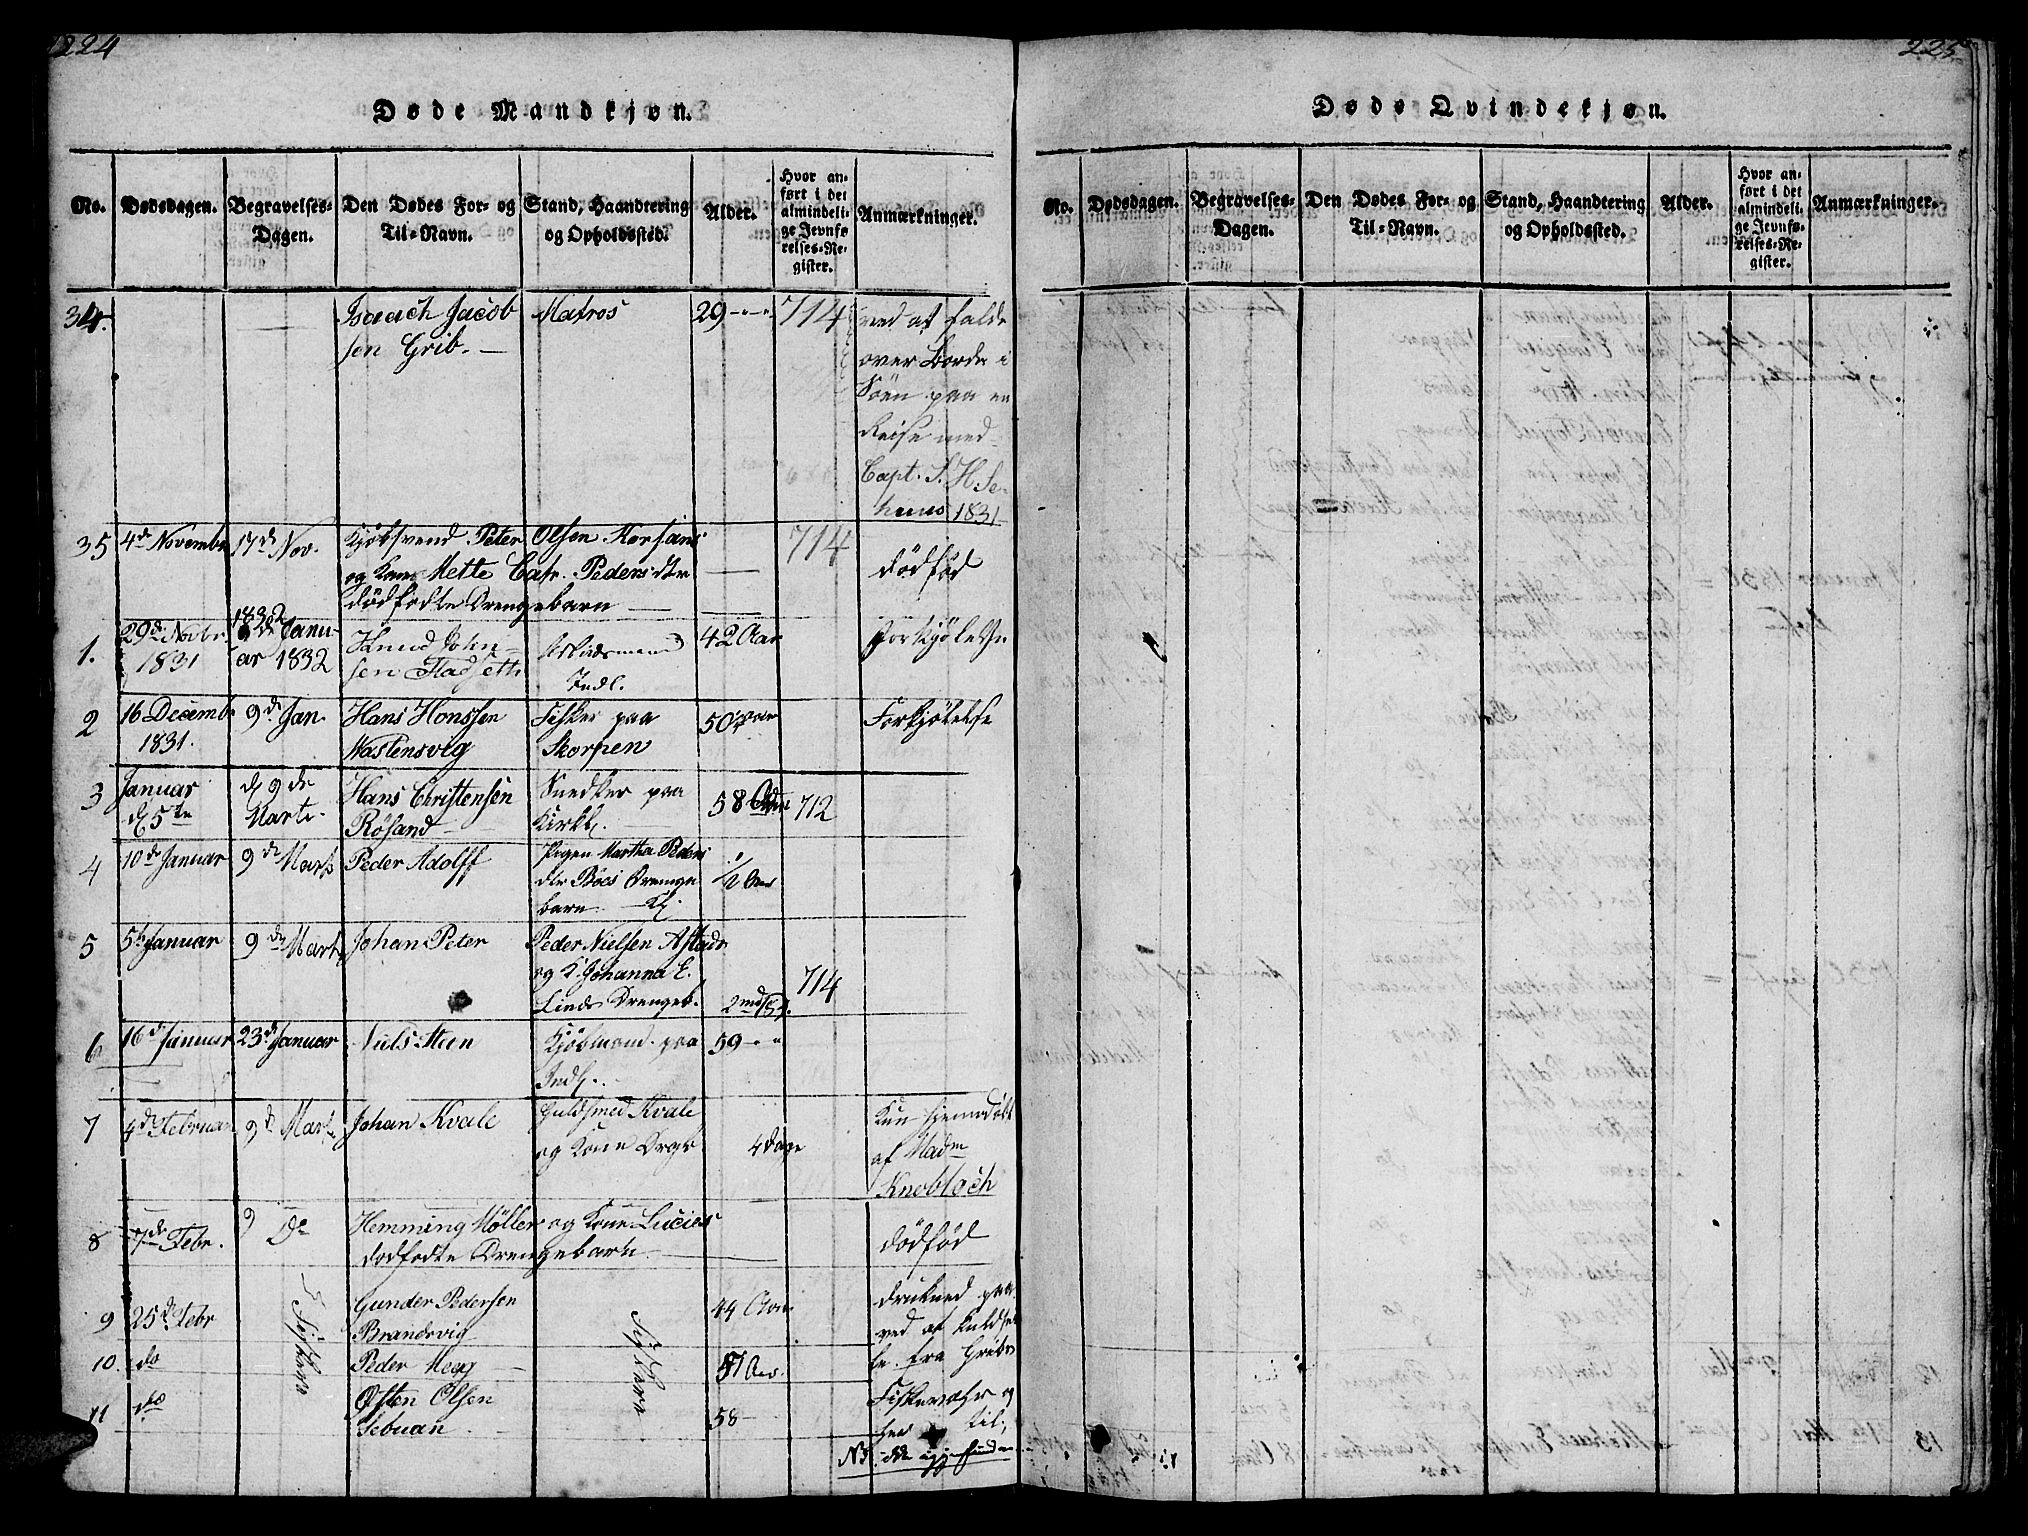 224
Døde Mandkjøn.
No.
Dødsdagen.
Begravelses-
Dagen.
Den Dødes For- og
Til-Navn.
Stand, Haandtering
og Opholdssted.
Alder.
Hvor an-
ført i det
almindeli-
ge Jevnfø-
relses-Re-
gister.
Anmærkninger.
34.
Isaach Jacob
sen Grib.
Matros
29
714
ved at falde
over Borde i
Søen paa en
Reise med
Capt. S. H. Se-
huus 1831
35
4de Novembr
17de Nov.
Kjøbsvend Peter Olsen Korsans
og Kone Mette Catr. Pedersdtr
dødfødte Drengebarn
714
dødfød
1.
29de Novbr
1831
1832
9de Janu-
ar 1832
Knud John-
sen Fladseth
Arbeidsmand
Indl.
42 Aar
Forkjølelse
2
16 Decemb
1831.
9de Jan.
Hans Honssen
Wastensvig
Fisker paa
Skorpen
50 Aar
Forkjølelse
3
Januar
d. 5te
d. 9de
Marti
Hans Christensen
Røsand
Snedker paa
Kirkl.
58
712
4
10de Januar
9de Marts
Peder Adolff
Pigen Martha Peders
dtr Böes Drenge
barn
1/2 Aar
5
5te Januar
9de Mart
Johan Peter
Peder Nielsen Astads
og K. Johanna E.
Linds Drengeb.
714
6
16de Januar
23de Januar
Niels Steen
Kjøbmand paa
Indl.
59
7
4de Februar
9de Mart
Johan Kvale
Guldsmed Kvale
og Kone Drgb.
4 dage
Kun hjemmedøbt
af Madm
Knobloch
8
7de Febr.
9 Do
Hemming Møller og Kone Lucies
dødfødte Drengebarn
dødfød
9
25de Febr
Gunder Pedersen
Brandsvig
44 Aar
10.
do
Peder Meeg
Aar
11
do
Østen Olsen
58
drukned paa
ved at kuldsei
le fra Grib
Fiskevær og
her til;
NB.
225
Døde Qvindekjøn.
No.
Dødsdagen.
Begravelses-
Dagen.
Den Dødes For- og
Til-Navn.
Stand, Haandtering
og Opholdssted.
Alder.
Hvor an-
ført i det
almindeli-
ge Jevnfø-
relses-Re-
gister.
Anmærkninger.